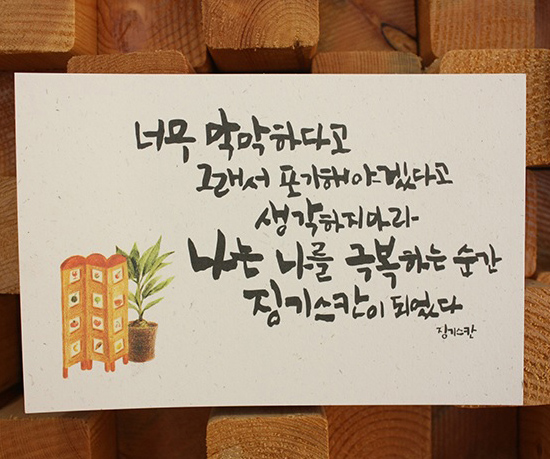 너무 막막하다고
그래서 포기해야겠다고
생각하지마라
나는 나를 극복하는 순간
징기스칸이 되었다
징기스칸